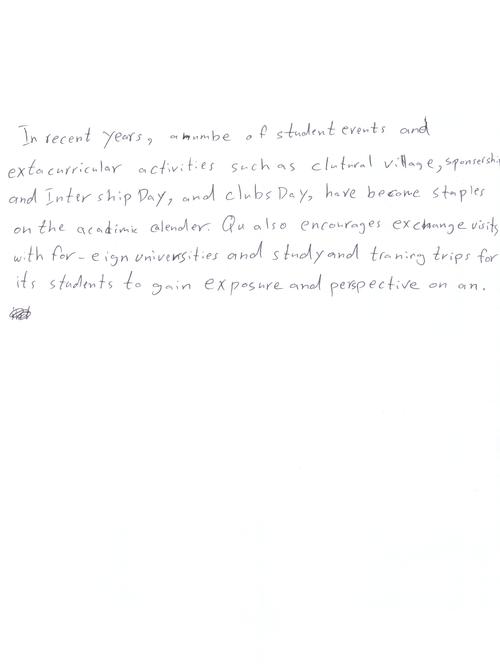 In recent years, a numbe of student events and
extacurricular activities such as clutural village, sponsership
and Inter ship Day, and clubs Day, have become staples
on the acadimic calender. Qu also encourages exchange visits
with for-eign universities and study and traning trips for
its students to gain exposure and perspective on an.